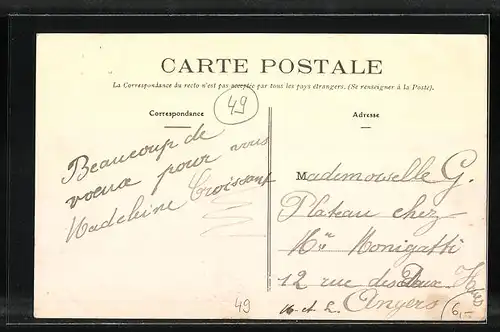 CARTE POSTALE
La Correspondance du recto n'est pas acceptée par tous les pays étrangers. (Se renseigner à la Poste).
49
Correspondance
Beaucoup de
vœux pour vous
Madeleine Croissant
Adresse
Mademoiselle G.
Plateau chez
Mme Monigatti
12 rue des Deux
Angers
49
6,-